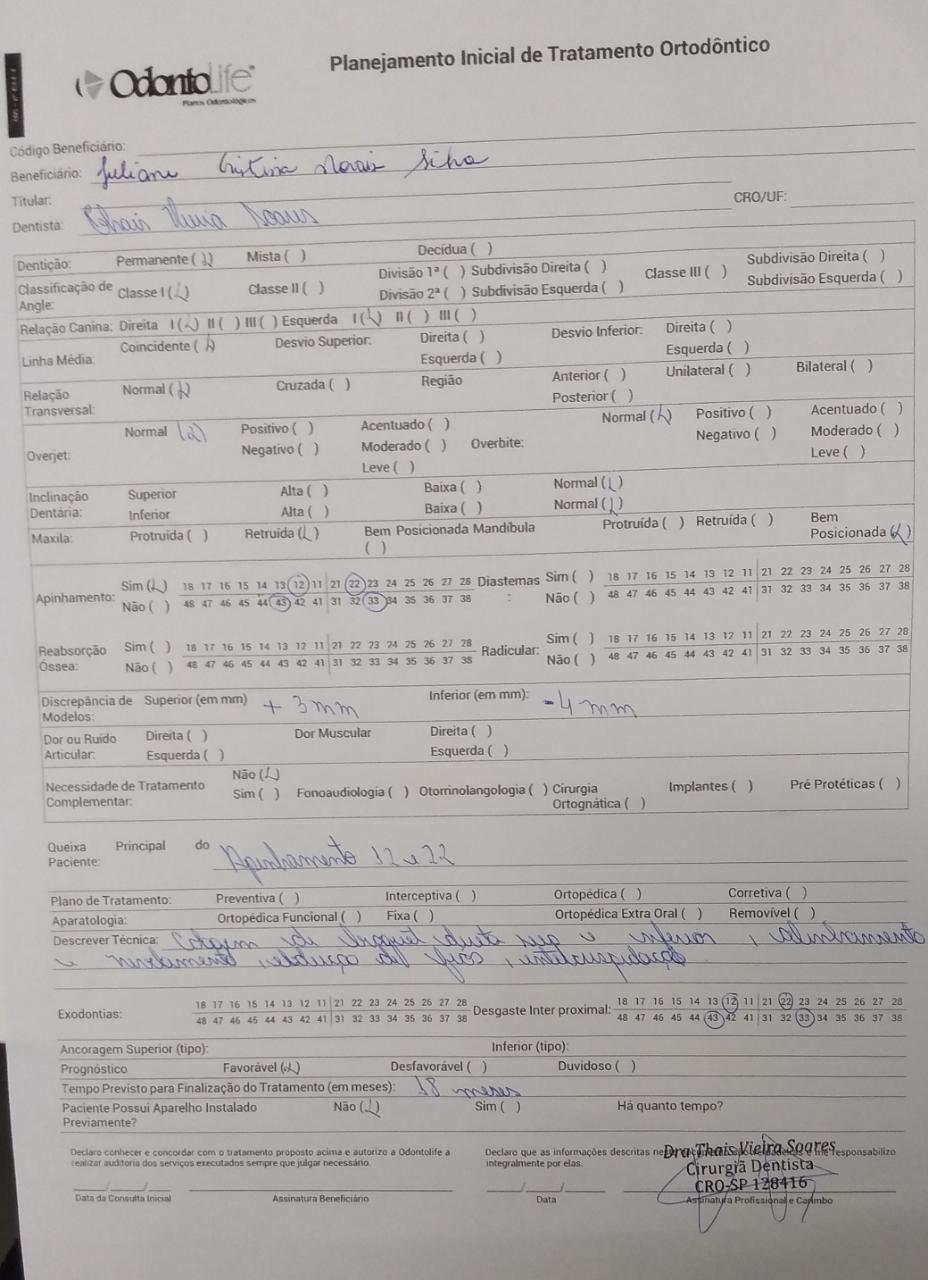 OdontoLife®
Planos Odontológicos
Planejamento Inicial de Tratamento Ortodôntico
Código Beneficiário:
Beneficiário: Juliane Cristina Morais Silva
Titular:
Dentista: Thais Vieira Soares CRO/UF:
Dentição: Permanente ( ) Mista ( ) Decídua ( )
Classificação de Angle: Classe I ( ) Classe II ( ) Divisão 1ª ( ) Subdivisão Direita ( ) Divisão 2ª ( ) Subdivisão Esquerda ( ) Classe III ( ) Subdivisão Direita ( ) Subdivisão Esquerda ( )
Relação Canina: Direita I ( ) II ( ) III ( ) Esquerda I ( ) II ( ) III ( )
Linha Média: Coincidente ( ) Desvio Superior: Direita ( ) Esquerda ( ) Desvio Inferior: Direita ( ) Esquerda ( )
Relação Transversal: Normal ( ) Cruzada ( ) Região Anterior ( ) Posterior ( ) Unilateral ( ) Bilateral ( )
Overjet: Normal ( ) Positivo ( ) Negativo ( ) Acentuado ( ) Moderado ( ) Leve ( ) Overbite: Normal ( ) Positivo ( ) Negativo ( ) Acentuado ( ) Moderado ( ) Leve ( )
Inclinação Dentária: Superior Alta ( ) Baixa ( ) Normal ( )
Inferior Alta ( ) Baixa ( ) Normal ( )
Maxila: Protruída ( ) Retruída ( ) Bem Posicionada ( ) Mandíbula Protruída ( ) Retruída ( ) Bem Posicionada ( )
Apinhamento: Sim ( ) 18 17 16 15 14 13 12 11 21 22 23 24 25 26 27 28 Diastemas : Sim ( ) 18 17 16 15 14 13 12 11 21 22 23 24 25 26 27 28
Não ( ) 48 47 46 45 44 43 42 41 31 32 33 34 35 36 37 38 Não ( ) 48 47 46 45 44 43 42 41 31 32 33 34 35 36 37 38
Reabsorção Óssea: Sim ( ) 18 17 16 15 14 13 12 11 21 22 23 24 25 26 27 28 Radicular: Sim ( ) 18 17 16 15 14 13 12 11 21 22 23 24 25 26 27 28
Não ( ) 48 47 46 45 44 43 42 41 31 32 33 34 35 36 37 38 Não ( ) 48 47 46 45 44 43 42 41 31 32 33 34 35 36 37 38
Discrepância de Modelos: Superior (em mm) + 3 mm Inferior (em mm): - 4 mm
Dor ou Ruído Articular: Direita ( ) Esquerda ( ) Dor Muscular Direita ( ) Esquerda ( )
Necessidade de Tratamento Complementar: Não ( ) Sim ( ) Fonoaudiologia ( ) Otorrinolangologia ( ) Cirurgia Ortognática ( ) Implantes ( ) Pré Protéticas ( )
Queixa Principal do Paciente: Apinhamento 12 e 22
Plano de Tratamento: Preventiva ( ) Interceptiva ( ) Ortopédica ( ) Corretiva ( )
Aparatologia: Ortopédica Funcional ( ) Fixa ( ) Ortopédica Extra Oral ( ) Removível ( )
Descrever Técnica: Colagem de sup e inferior, alinhamento
e nivelamento, de fios, intercuspidação
Exodontias: 18 17 16 15 14 13 12 11 21 22 23 24 25 26 27 28 Desgaste Inter proximal: 18 17 16 15 14 13 12 11 21 22 23 24 25 26 27 28
48 47 46 45 44 43 42 41 31 32 33 34 35 36 37 38 48 47 46 45 44 43 42 41 31 32 33 34 35 36 37 38
Ancoragem Superior (tipo): Inferior (tipo):
Prognóstico Favorável ( ) Desfavorável ( ) Duvidoso ( )
Tempo Previsto para Finalização do Tratamento (em meses): 18 meses
Paciente Possui Aparelho Instalado Previamente? Não ( ) Sim ( ) Há quanto tempo?
Declaro conhecer e concordar com o tratamento proposto acima e autorizo a Odontolife a
realizar auditoria dos serviços executados sempre que julgar necessário.
Declaro que as informações descritas responsabilizo
integralmente por elas.
Dra Thais Vieira Soares
Cirurgiã Dentista
CRO-SP 128416
Data da Consulta Inicial Assinatura Beneficiário Data Assinatura Profissional e Carimbo